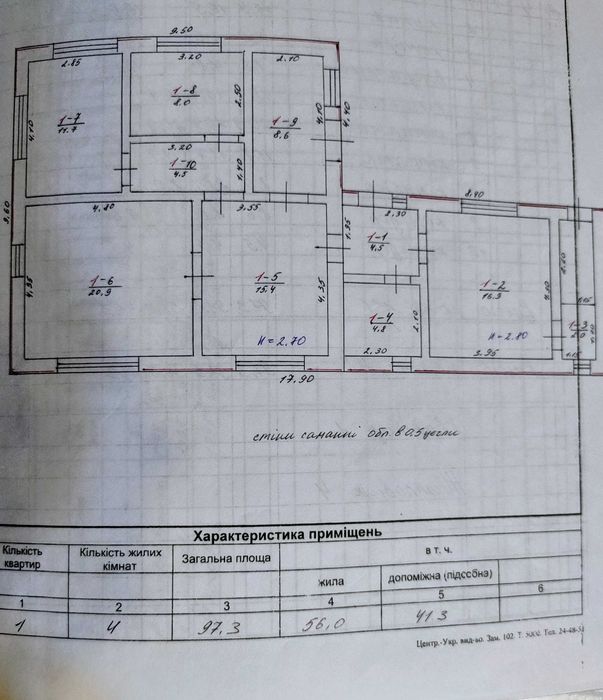 9.50
2.85
3.20
2.10
1-7
11.7
4.10
1-8
8.0
2.50
1-9
8.6
4.10
4.40
3.20
1-10
4.5
1.40
9.60
4.80
3.55
8.40
2.30
1-1
4.5
1.95
1-6
20.9
4.35
1-5
15.4
4.35
1-2
16.3
1-4
4.8
2.10
1-3
2.0
1.15
н=2.70
н=2.80
2.30
3.95
1.15
17.90
стіни саманні обл. в 0.5 цегли
Характеристика приміщень
Кількість квартир
Кількість жилих кімнат
Загальна площа
в т. ч.
жила
допоміжна (підсобна)
1 2 3 4 5 6
1 4 97,3 56,0 41.3
Центр.-Укр. вид-во. Зам. 102. Т. 5000. Тел. 24-48-51